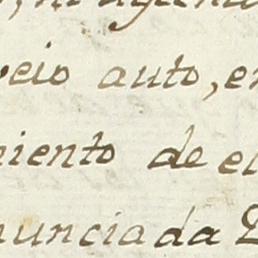 veio auto, en
miento de el
nunciada D